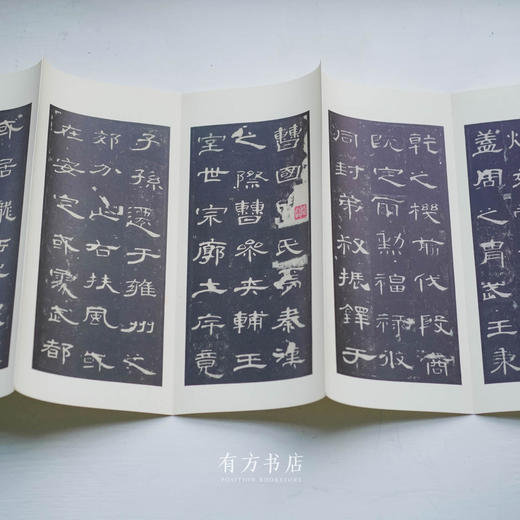 蓋周之冑武王秉
乾之機翦伐殷商
既定爾勳福祿攸
同封弟叔振鐸于
曹國因氏焉秦漢
之際曹參夾輔王
室世宗廓土斥竟
子孫遷于雍州之
郊分止右扶風或
在安定或處武都
或居隴西
有方书店
POSITION BOOKSTORE